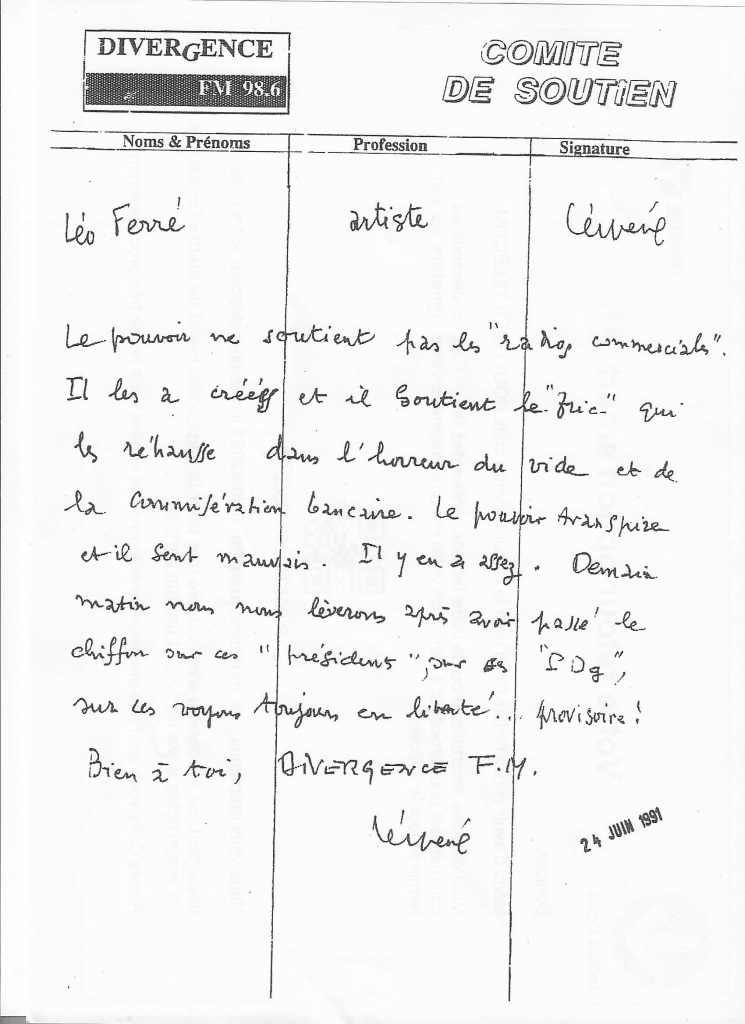 DIVERGENCE
FM 98.6
COMITE
DE SOUTiEN
Noms & Prénoms Profession Signature
Léo Ferré artiste
Le pouvoir ne soutient pas les "radios commerciales".
Il les a créées et il soutient le "fric" qui
les réhausse dans l'horreur du vide et de
la commisération bancaire. Le pouvoir transpire
et il sent mauvais. Il y en a assez. Demain
matin nous nous lèverons après avoir passé le
chiffon sur ces "présidents", sur ces "PDg",
sur ces voyous toujours en liberté... provisoire!
Bien à toi, DIVERGENCE F.M.
24 JUIN 1991